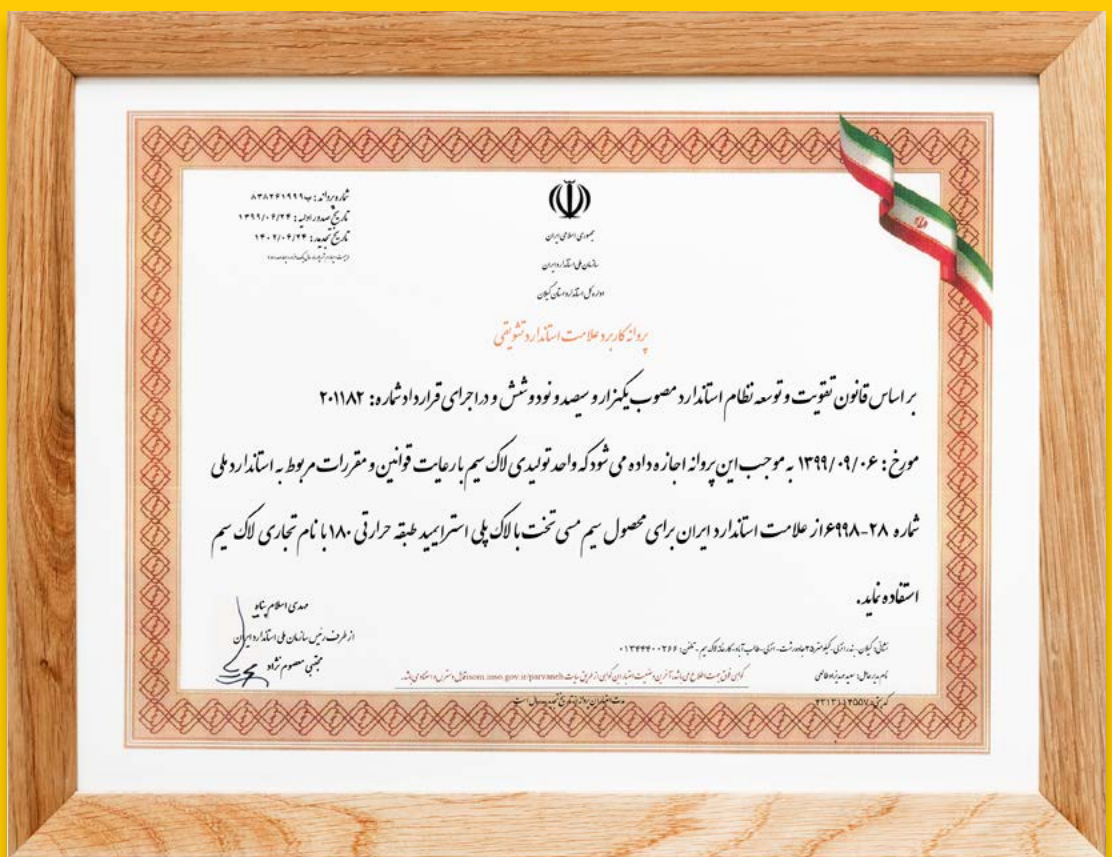 شماره پروانه : ب۸۳۸۲۶۱۹۹۹
تاریخ صدور اولیه : ۱۳۹۹/۰۶/۲۴
تاریخ تجدید : ۱۴۰۲/۰۶/۲۴
جمهوری اسلامی ایران
سازمان ملی استاندارد ایران
اداره کل استاندارد استان گیلان
پروانه کاربرد علامت استاندارد تشویقی
بر اساس قانون تقویت و توسعه نظام استاندارد مصوب یکهزار و سیصد و نود و شش و در اجرای قرارداد شماره : ۲۰۱۱۸۲
مورخ : ۱۳۹۹/۰۹/۰۶ به موجب این پروانه اجازه داده می شود که واحد تولیدی لاک سیم با رعایت قوانین و مقررات مربوط به استاندارد ملی
شماره ۲۸-۶۹۹۸ از علامت استاندارد ایران برای محصول سیم مسی تخت با لاک پلی استرایمید طبقه حرارتی ۱۸۰ با نام تجاری لاک سیم
استفاده نماید.
مهدی اسلام پناه
از طرف رئیس سازمان ملی استاندارد ایران
مجتبی معصوم نژاد
نشانی: گیلان - بندر انزلی - کیلومتر ۲۵ جاده رشت - انزلی - طالب آباد - کارخانه لاک سیم - تلفن: ۰۱۳۴۴۴۰۰۲۶۶
نام مدیر عامل: سعید
گواهی فوق جهت اطلاع می باشد. آخرین وضعیت اعتبار این گواهی از طریق سایت isom.inso.gov.ir/parvaneh قابل دسترس و استناد می باشد.
مدت اعتبار این پروانه از تاریخ تجدید سال است